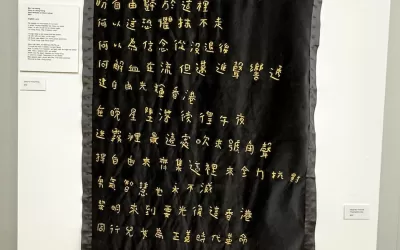 盼自由歸於這裡
何以這恐懼抹不走
何以為信念從沒退後
何解血在流但邁進聲響透
建自由光輝香港
在晚星墜落徬徨午夜
迷霧裡最遠處吹來號角聲
捍自由來齊集這裡來全力抗對
勇氣智慧也永不滅
黎明來到要光復這香港
同行兒女為正義時代革命